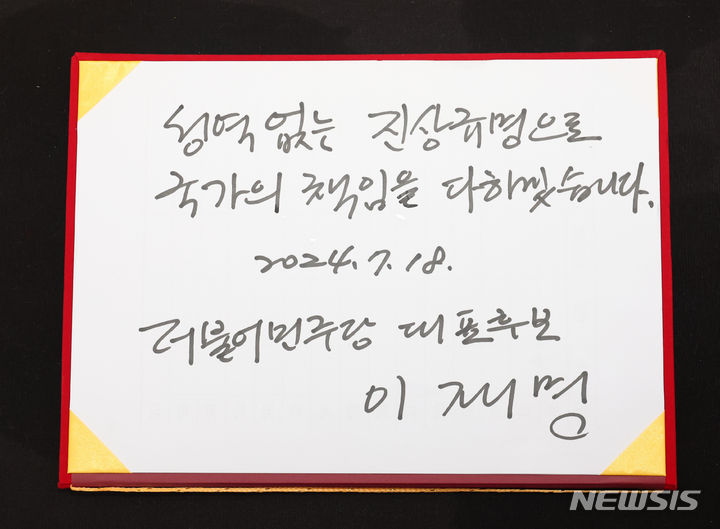 성역 없는 진상규명으로
국가의 책임을 다하겠습니다.
2024. 7. 18.
더불어민주당 대표후보
이재명
NEWSIS